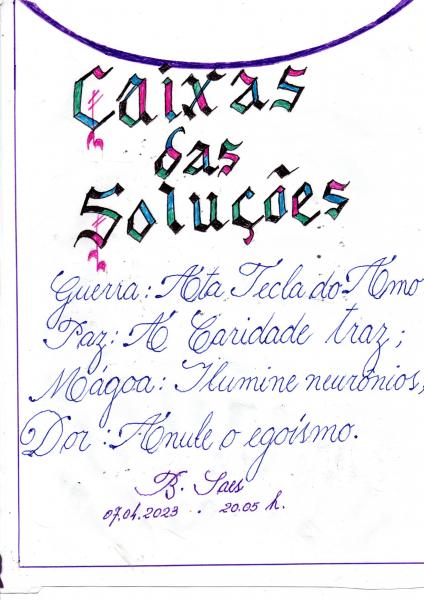 Caixas
das
Soluções
Guerra: Ata Tecla do Amo
Paz: A Caridade traz;
Mágoa: Ilumine neurônios,
Dor: Anule o egoísmo.
B. Saes
07.04.2023 . 20.05 h.